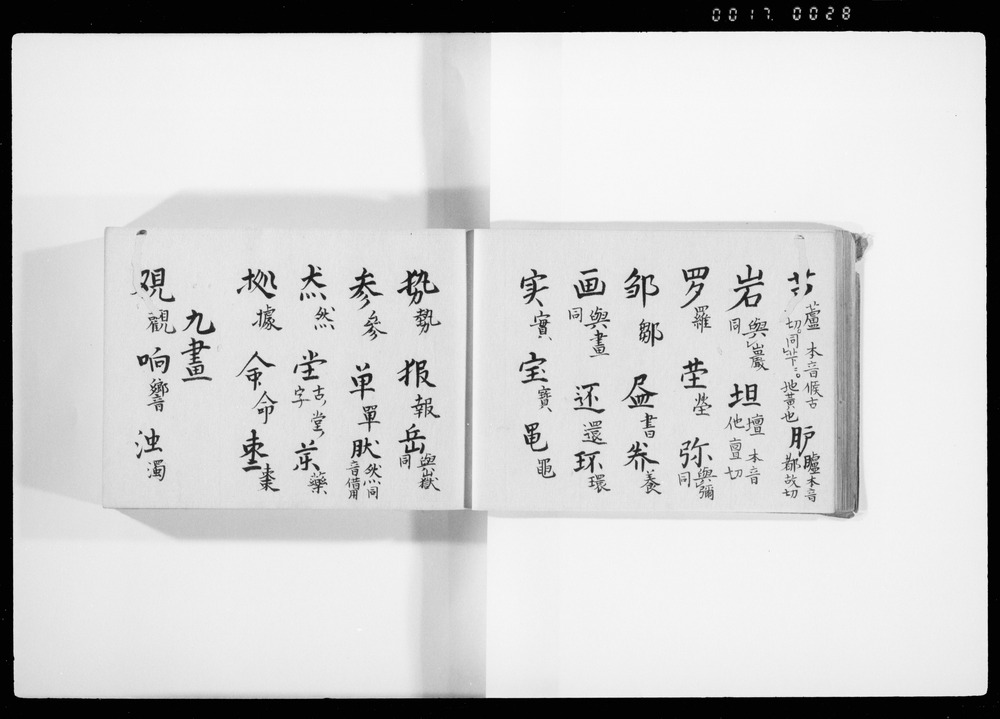 0017 0028
芐 蘆 本音候古切同芐〻。地黃也 胪 臚 本音都故切
岩 與巖同 坦 壇 本音他亶切
罗 羅 茔 塋 弥 與彌同
邹 鄒 书 養
画 與畫同 还 還 环 環
实 實 宝 寶 黾 黽
势 勢 报 報 岳 與嶽同
参 參 单 單 肰 然同音借用
然 堂 古堂字 藥
據 命 命 枣 棗
九畫
覌 觀 响 響 浊 濁